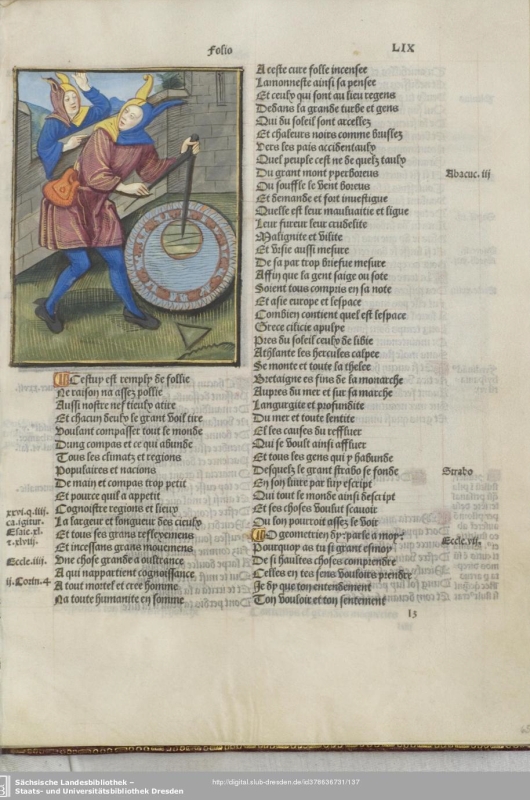 Folio
LIX
Cestuy est remply de follie
Ne raison na assez pollie
Aussi nostre nef tieuly atire
Et chacun deuly le grant voil tire
Voulant compasser tout le monde
Dung compas et ce qui abunde
Tous les climatz et regions
Populaires et nacions
De main et compas trop petit
Et pource quil a appetit
Cognoistre regions et lieux
La largeur et longueur des cieulx
Et tous ses grans reflexcimens
Et incessans grans mouuemens
Une chose grande a oultrance
A qui nappartient cognoissance
A tout mortel et cree homme
Na toute humanite en somme
xxvi.q.iiii.
ca.igitur.
Esaie.xl.
z.xlvii.
Eccle.iiii.
ii.Corin.4
A ceste cure folle incensee
Lamonneste ainsi sa pensee
Et ceulx qui sont au lieu regens
Dedans la grande turbe et gens
Qui du soleil sont arcellez
Et chaleurs noirs comme bruslez
Vers les pais accidentaulx
Quel peuple cest ne de quelz taulx
Du grant mont yperboreus
Ou souffle le vent boreus
Et demande et fort inuestigue
Quelle est leur mauluaitie et ligue
Leur fureur leur crudelite
Malignite et vilite
Et vise aussi mesure
De sa par trop briefue mesure
Affin que la gent saige ou sote
Soient tous compris en sa note
Et asie europe et lespace
Combien contient quel est lespace
Grece cilicie apulye
Pres du soleil ceulx de libie
Athlante les hercules calpee
Se monte et toute la thelee
Bretaigne es fins de sa monarche
Aupres du mer et sur sa marche
Langurgite et profundite
Du mer et toute sentite
Et les causes du reffluer
Qui se voult ainsi affluer
Et tous les gens qui y habunde
Desquelz le grant strabo se fonde
En son liure par luy escript
Qui tout le monde ainsi descript
Et les choses voulut scauoir
Ou lon pourroit assez le voir
O geometrien dy: parle a moy:
Pourquoy as tu si grant esmoy
De si haultes choses comprendre
Celles en tes sens vouloirs prendre
Je dy que ton entendement
Ton vouloir et ton sentement
Abacuc.iii
Strabo
Eccle.vii.
l3
Sächsische Landesbibliothek –
Staats- und Universitätsbibliothek Dresden
http://digital.slub-dresden.de/id378638731/137